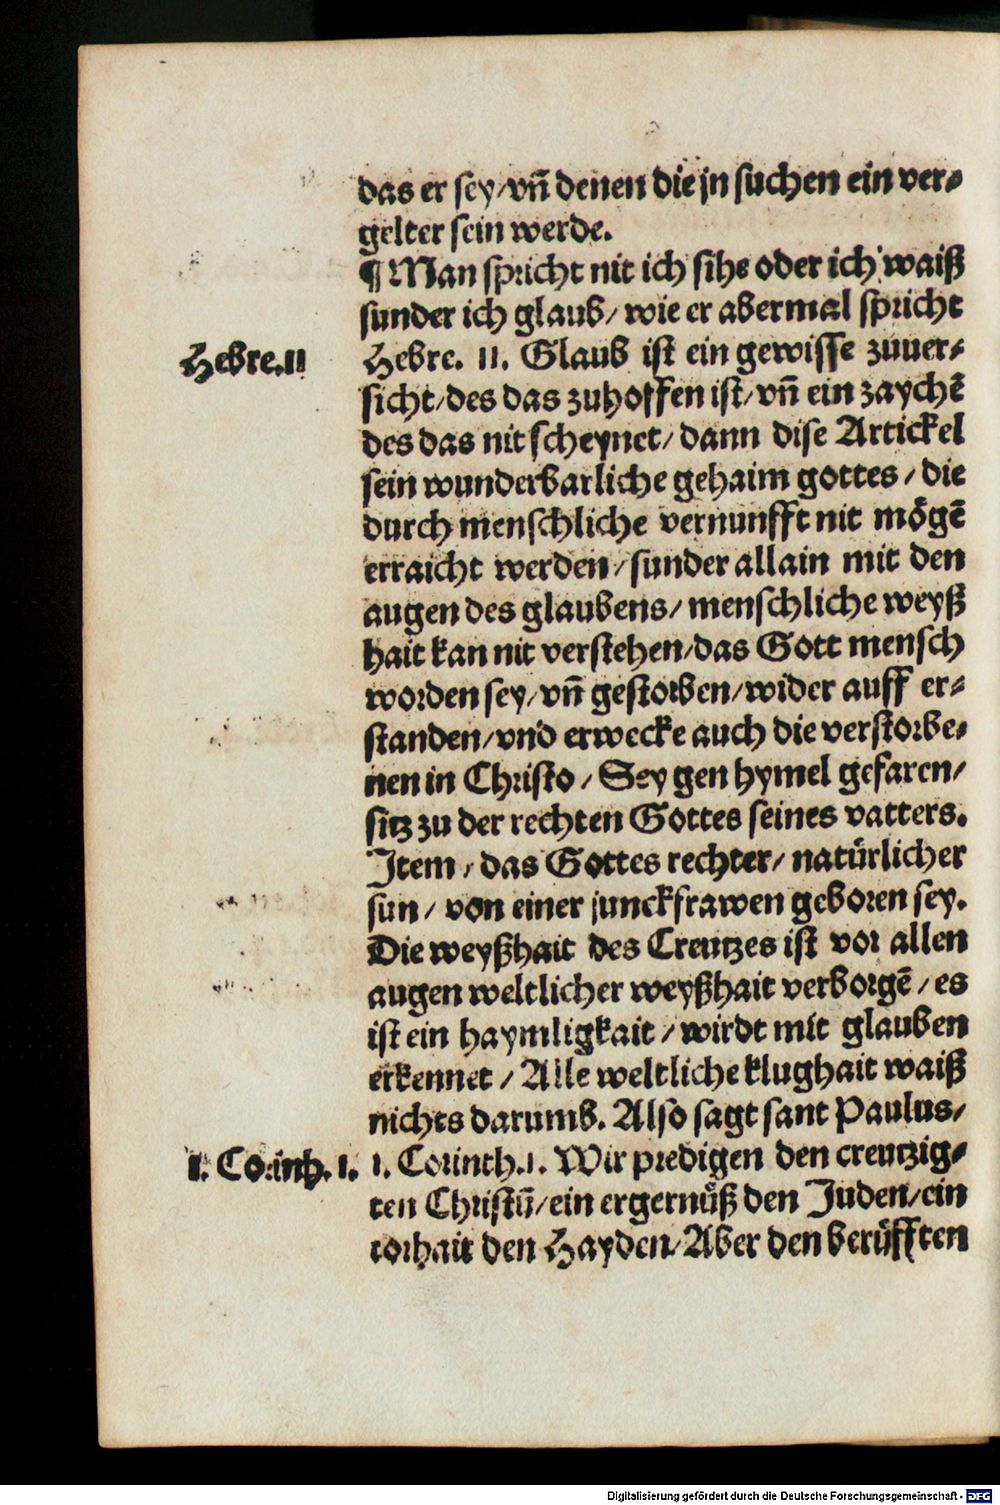 das er sey/vn̄ denen die jn suchen ein ver⸗
gelter sein werde.
¶ Man spricht nit ich sihe oder ich waiß
sunder ich glaub/ wie er abermal spricht
Hebre.11
Hebre. 11. Glaub ist ein gewisse zuuer⸗
sicht/des das zuhoffen ist/vn̄ ein zaychē
des das nit scheynet/dann dise Artickel
sein wunderbarliche gehaim gottes/die
durch menschliche vernunfft nit mögē
erraicht werden/sunder allain mit den
augen des glaubens/menschliche weyß
hait kan nit verstehen/das Gott mensch
worden sey/vn̄ gestorben/wider auff er⸗
standen/vnd erwecke auch die verstorbe⸗
nen in Christo/Sey gen hymel gefaren/
sitz zu der rechten Gottes seines vatters.
Item/das Gottes rechter/natürlicher
sun/von einer junckfrawen geboren sey.
Die weyßhait des Creutzes ist vor allen
augen weltlicher weyßhait verborgē/es
ist ein haymligkait/wirdt mit glauben
erkennet/Alle weltliche klughait waiß
nichts darumb. Also sagt sant Paulus/
1. Corinth. 1.
1. Corinth.1. Wir predigen den creutzig⸗
ten Christū/ein ergernüß den Juden/ein
torhait den Hayden/Aber den berüfften
Digitalisierung gefördert durch die Deutsche Forschungsgemeinschaft - DFG